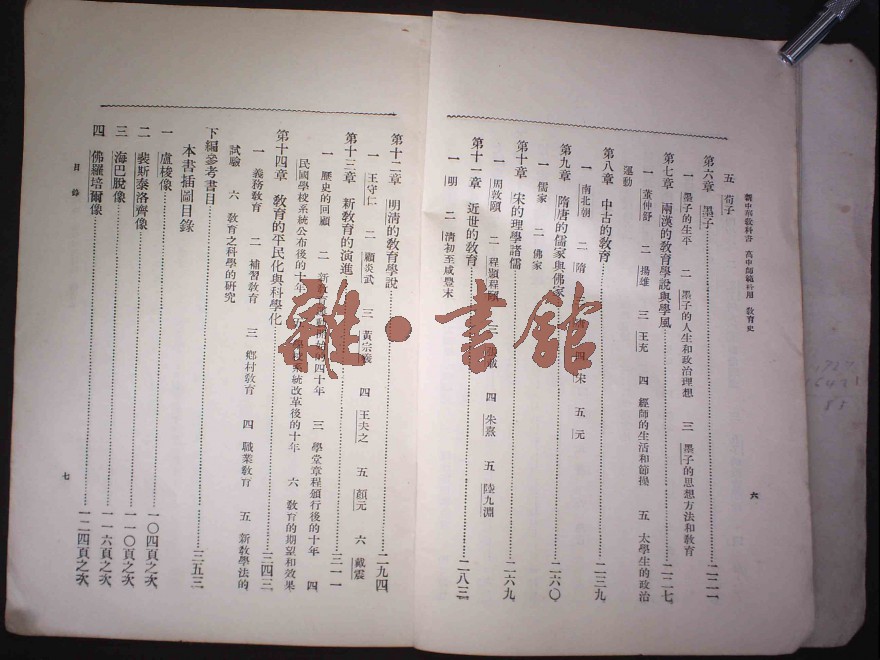 新中華教科書 高中師範科用 教育史
五 荀子
第六章 墨子……二二一
一 墨子的生平 二 墨子的人生和政治理想 三 墨子的思想方法和教育
第七章 兩漢的教育學說與學風……二二七
一 董仲舒 二 揚雄 三 王充 四 經師的生活和節操 五 太學生的政治
運動
第八章 中古的教育……二三九
一 南北朝 二 隋 三 唐 四 宋 五 元
第九章 隋唐的儒家與佛家……二六〇
一 儒家 二 佛家
第十章 宋的理學諸儒……二六九
一 周敦頤 二 程顥程頤 三 張載 四 朱熹 五 陸九淵
第十一章 近世的教育……二八三
一 明 二 清初至咸豐末
六
第十二章 明清的教育學說……二九四
一 王守仁 二 顧炎武 三 黃宗羲 四 王夫之 五 顏元 六 戴震
第十三章 新教育的演進……三一一
一 歷史的回顧 二 新教育的四十年 三 學堂章程頒行後的十年 四
民國學校系統公布後的十年 五 學校系統改革後的十年 六 教育的期望和效果
第十四章 教育的平民化與科學化……三四三
一 義務教育 二 補習教育 三 鄉村教育 四 職業教育 五 新教學法的
試驗 六 教育之科學的研究
下編參考書目……三五三
本書插圖目錄
一 盧梭像……一〇四頁之次
二 裴斯泰洛齊像……一一〇頁之次
三 海巴脫像……一一六頁之次
四 佛羅培爾像……一二四頁之次
目錄
七
雜·書館